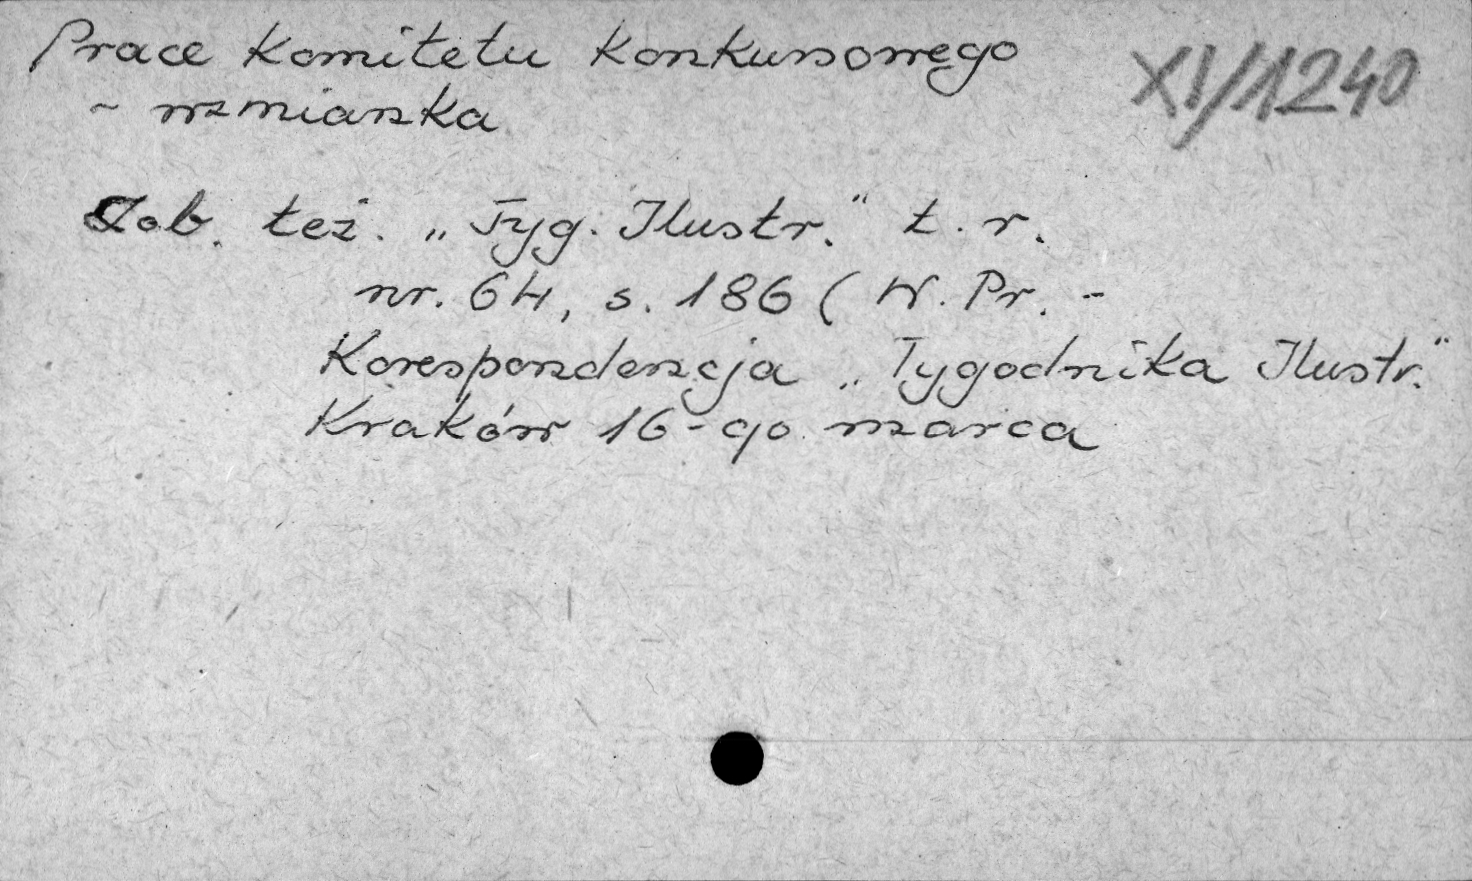 Prace Komitetu Konkursowego XI/1240
- wzmianka
Zob. też. „Tyg. Ilustr." t. r.
nr. 64, s. 186 (W. Pr. -
Korespondencja „Tygodnika Ilustr."
Kraków 16-go marca